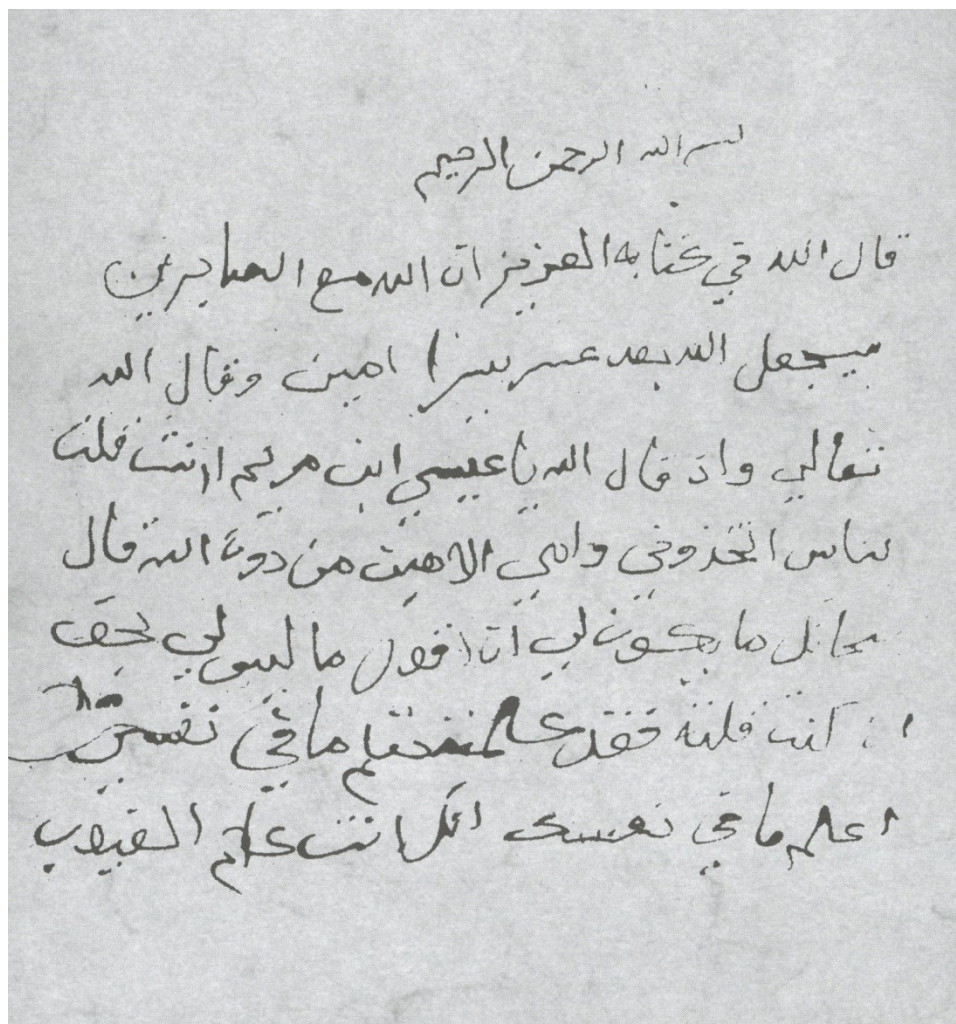 بسم الله الرحمن الرحيم
قال الله في كتابه العزيز ان الله مع الصابرين
سيجعل الله بعد عسر يسرا امين وقال الله
تعالي واذ قال الله يا عيسي ابن مريم اانت قلت
لناس اتخذوني وامي الاهين من دون الله قال
ما يكون لي ان اقول ما ليس لي بحق
ان كنت قلته فقد تعلم ما في نفسي
اعلم ما في نفسك انك انت علام الغيوب